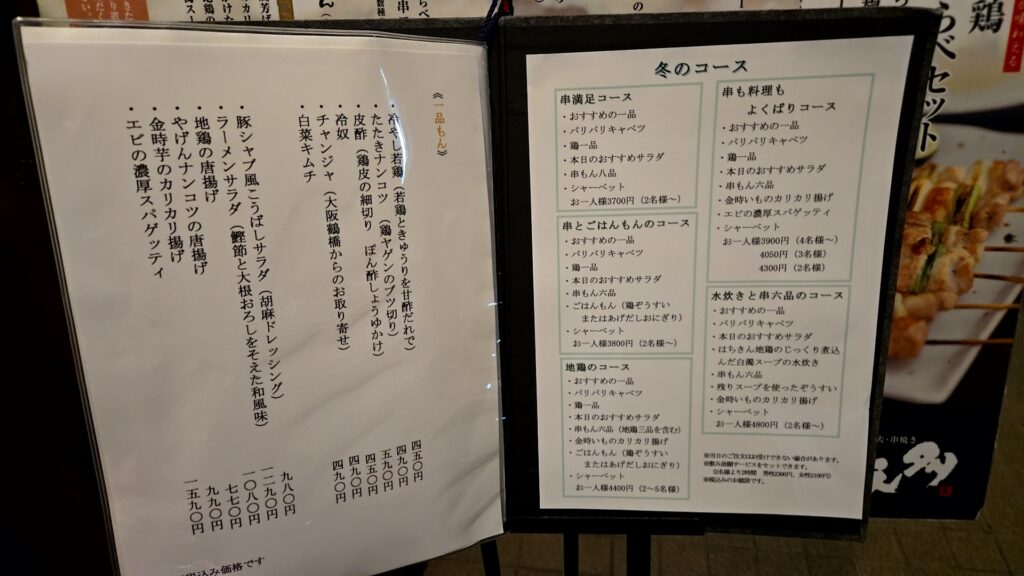 《一品もん》
・冷やし若鶏（若鶏ときゅうりを甘酢だれで）　四五〇円
・たたきナンコツ（鶏ヤゲンのブツ切り）　四九〇円
・皮酢（鶏皮の細切り　ぽん酢しょうゆかけ）　五九〇円
・冷奴　四五〇円
・チャンジャ（大阪鶴橋からのお取り寄せ）　四九〇円
・白菜キムチ　四九〇円
・豚シャブ風こうばしサラダ（胡麻ドレッシング）　九八〇円
・ラーメンサラダ（鰹節と大根おろしをそえた和風味）　一二九〇円
・地鶏の唐揚げ　一〇八〇円
・やげんナンコツの唐揚げ　七七〇円
・金時芋のカリカリ揚げ　九九〇円
・エビの濃厚スパゲッティ　一五九〇円
税込み価格です
冬のコース
串満足コース
・おすすめの一品
・パリパリキャベツ
・鶏一品
・本日のおすすめサラダ
・串もん八品
・シャーベット
お一人様3700円（2名様～）
串とごはんもんのコース
・おすすめの一品
・パリパリキャベツ
・鶏一品
・本日のおすすめサラダ
・串もん六品
・ごはんもん（鶏ぞうすい
またはあげだしおにぎり）
・シャーベット
お一人様3800円（2名様～）
地鶏のコース
・おすすめの一品
・パリパリキャベツ
・鶏一品
・本日のおすすめサラダ
・串もん六品（地鶏三品を含む）
・金時いものカリカリ揚げ
・ごはんもん（鶏ぞうすい
またはあげだしおにぎり）
・シャーベット
お一人様4400円（2～5名様）
串も料理も
よくばりコース
・おすすめの一品
・パリパリキャベツ
・鶏一品
・本日のおすすめサラダ
・串もん六品
・金時いものカリカリ揚げ
・エビの濃厚スパゲッティ
・シャーベット
お一人様3900円（4名様～）
4050円（3名様）
4300円（2名様）
水炊きと串六品のコース
・おすすめの一品
・パリパリキャベツ
・本日のおすすめサラダ
・はちきん地鶏のじっくり煮込
んだ白濁スープの水炊き
・串もん六品
・残りスープを使ったぞうすい
・金時いものカリカリ揚げ
・シャーベット
お一人様4800円（2名様～）
※当日のご注文はお受けできない場合があります。
※飲み放題サービスをセットできます。
（2名様より2時間　男性2300円、女性2100円）
※税込みのお値段です。
鶏
らべセット
串焼き